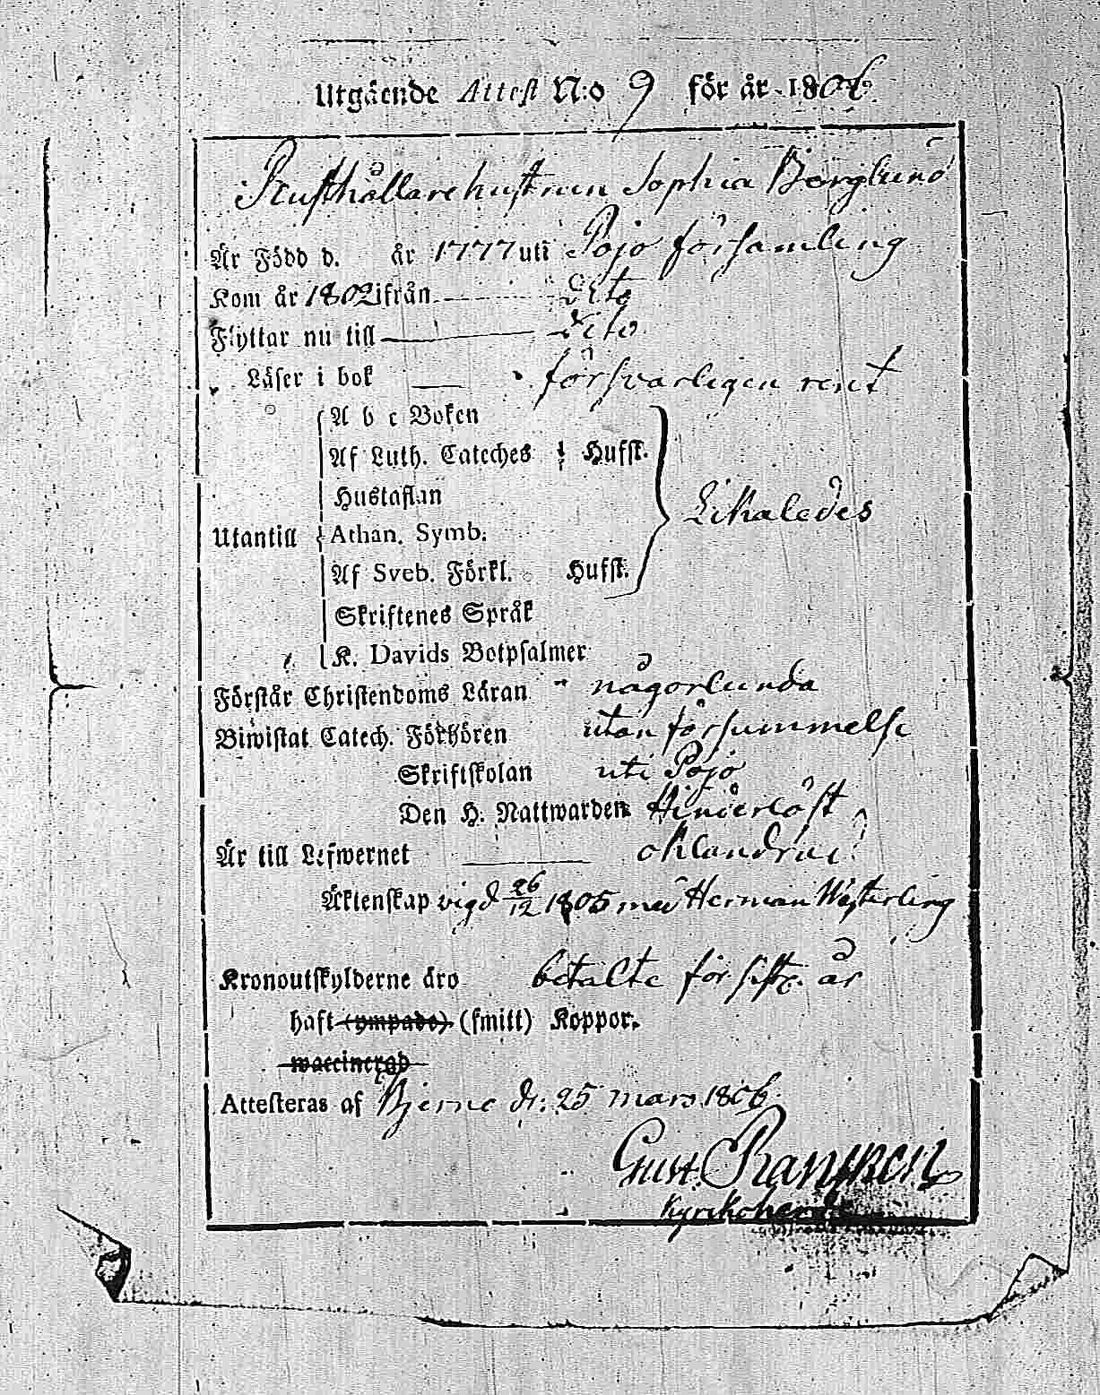 Utgående Attest N:o 9 för år 1806.
Rusthållarehustrun Sophia Borglund
Är Född d. år 1777 uti Pojo församling
Kom år 1802 ifrån dito
Flyttar nu till dito
Läser i bok försvarligen rent
A b c Boken
Af Luth. Cateches Hufst.
Hustaflan
Utantill Athan. Symb. Likaledes
Af Sveb. Förkl. Hufst.
Skriftenes Språk
K. Davids Botpsalmer
Förstår Christendoms Läran någorlunda
Biwistat Catech. Förhören utan försummelse
Skriftskolan uti Pojo
Den H. Nattwarden Hinderlöst
Är till Lefwernet oklandrad
Äktenskap vigd 26/12 1805 med Herman Westerling
Kronoutskylderne äro betalte för sistl. år
haft (ympade) (smitt) Koppor.
waccinerad
Attesteras af Bjerno d. 25 mars 1806.
Gust. Rancken
Kyrkoherde